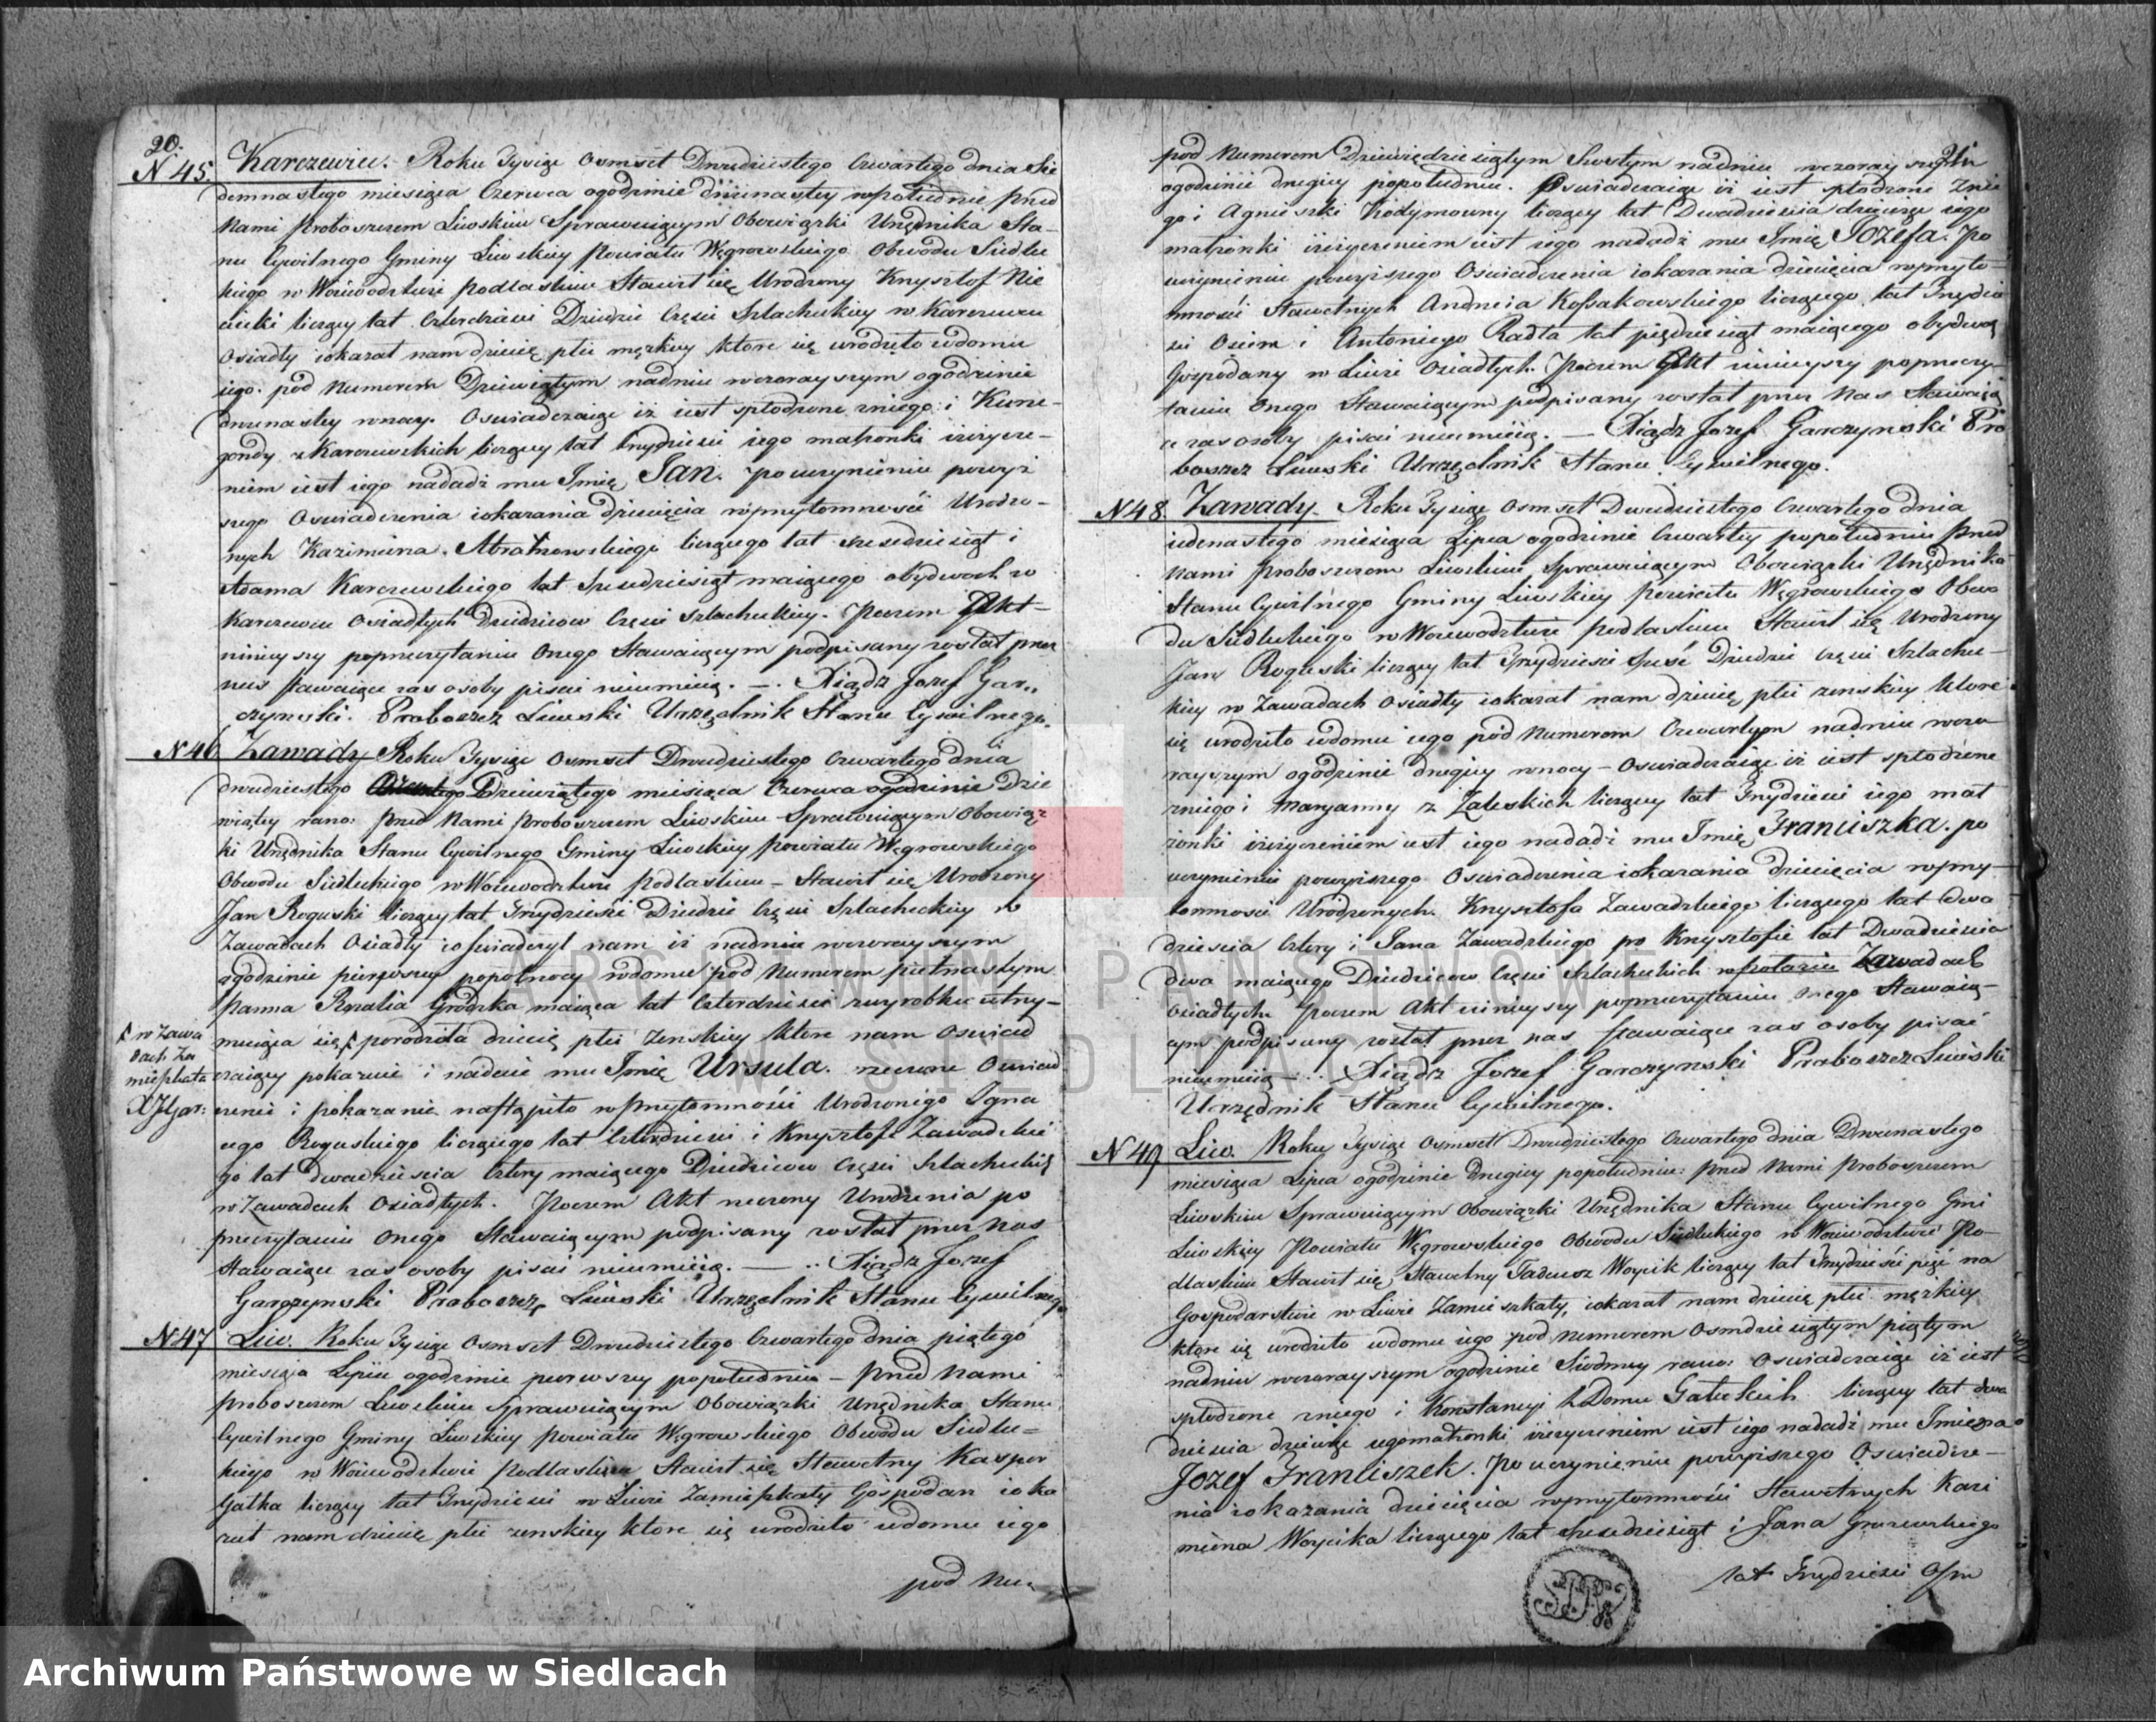 20.
N 45. Karczewiec. Roku Tysiąc Osmset Dwudziestego Czwartego dnia Sie
demnastego miesiąca Czerwca ogodzinie dwunastey wpołudnie przed
Nami Proboszczem Liwskim Sprawuiącym Obowiązki Urzędnika Sta-
nu Cywilnego Gminy Liwskiey Powiatu Węgrowskiego Obwodu Siedlec
kiego w Woiewodztwie Podlaskim Stawił się Urodzony Krzysztof Nie
liczący lat Czterdzieści Dziedzic Części Szlacheckiey w Karczewcu
Osiadły iokazał nam dziecię płci męzkiey ktore się urodziło wdomu
iego pod Numerem Dziewiątym nadniu wczorayszym ogodzinie
dwunastey wnocy. Oswiadczaiąc iż iest spłodzone zniego i Kune-
gondy z Karczewskich liczącey lat trzydzieści iego małżonki iżżycze-
niem iest iego nadadż mu Imię Jan. Po uczynieniu powyż
szego Oswiadczenia iokazania dziecięcia wprzytomności Urodzo-
nych Kazimierza liczącego lat szesdziesiąt i
Adama Karczewskiego lat Szesdziesiąt maiącego obydwoch w
Karczewcu Osiadłych Dziedzicow Części Szlacheckiey. Poczem Akt
ninieyszy poprzeczytaniu Onego Stawaiącym podpisany został przez
nas stawaiące zas osoby pisać nieumieią. — Xiądz Jozef Gar-
czynski. Proboszcz Liwski Urzędnik Stanu Cywilnego.
N 46 Zawady Roku Tysiąc Osmset Dwudziestego Czwartego dnia
dwudziestego Dziewiątego miesiąca Czerwca ogodzinie Dzie
wiątey rano: przed Nami Proboszczem Liwskim Sprawuiącym Obowiąz
ki Urzędnika Stanu Cywilnego Gminy Liwskiey Powiatu Węgrowskiego
Obwodu Siedleckiego w Woiewodztwie Podlaskim – Stawił się Urodzony
Jan Roguski liczący lat Trzydzieści Dziedzic Części Szlacheckiey w
Zawadach Osiadły ioswiadczył nam iż nadniu wczorayszym
ogodzinie pierwszey popołnocy wdomu pod Numerem piętnastym
Panna Rozalia Grodzka maiąca lat Czterdzieści zwyrobku utrzy-
muiąca się, porodziła dziecię płci żenskiey ktore nam Oswiad
czaiący pokazuie i nadaie mu Imię Urszula. rzeczone Oswiad
czenie i pokazanie nastąpiło wprzytomności Urodzonego Igna
cego Roguskiego liczącego lat Czterdzieści i Krzysztofa Zawadzkie
go lat dwadzieścia Cztery maiącego Dziedzicow Części Szlacheckiey
w Zawadach Osiadłych. Poczem Akt rzeczony Urodzenia po
przeczytaniu Onego Stawaiącym podpisany został przez Nas
Stawaiące zas osoby pisać nieumieią. — Xiądz Jozef
Garczynski Proboszcz Liwski Urzędnik Stanu Cywilnego
w Zawa
dach Za
mieszkała
XJGar:
N 47 Liw. Roku Tysiąc Osmset Dwudziestego Czwartego dnia piątego
miesiąca Lipca ogodzinie pierwszey popołudniu – przed Nami
Proboszczem Liwskim Sprawuiącym Obowiązki Urzędnika Stanu
Cywilnego Gminy Liwskiey Powiatu Węgrowskiego Obwodu Siedlec=
kiego w Woiewodztwie Podlaskim Stawił się Sławetny Kasper
Gałka liczący lat Trzydzieści w Liwie Zamieszkały Gospodarz ioka
zał nam dziecię płci żenskiey ktore się urodziło wdomu iego
pod Nu-
pod Numerem Dziewiędziesiątym Szostym nadniu wczorayszym
ogodzinie drugiey popołudniu. Oswiadczaiąc iż iest spłodzone znie
go i Agnieszki liczącey lat Dwadzieścia dziewięć iego
małżonki iżżyczeniem iest iego nadadż mu Imię Jozefa. Po
uczynieniu powyższego Oswiadczenia iokazania dziecięcia wprzyto-
mności Sławetnych Andrzeia Kossakowskiego liczącego lat Trzydzie
ści Osiem i Antoniego Radła lat pięćdziesiąt maiącego obydwoch
Gospodarzy w Liwie Osiadłych. Poczem Akt ninieyszy poprzeczy-
taniu Onego Stawaiącym podpisany został przez Nas Stawaią
ce zas osoby pisać nieumieią. — Xiądz Jozef Garczynski Pro
boszcz Liwski Urzędnik Stanu Cywilnego.
N 48. Zawady. Roku Tysiąc Osmset Dwudziestego Czwartego dnia
iedenastego miesiąca Lipca ogodzinie Czwartey popołudniu przed
Nami Proboszczem Liwskim Sprawuiącym Obowiązki Urzędnika
Stanu Cywilnego Gminy Liwskiey Powiatu Węgrowskiego Obwo
du Siedleckiego w Woiewodztwie Podlaskim Stawił się Urodzony
Jan Roguski liczący lat Trzydzieści Sześć Dziedzic Części Szlachec-
kiey w Zawadach Osiadły iokazał nam dziecię płci żenskiey ktore
się urodziło wdomu iego pod Numerem Czwartym nadniu wczo
rayszym ogodzinie drugiey wnocy – Oswiadczaiąc iż iest spłodzone
zniego i Maryanny z Zaleskich liczącey lat Trzydzieści iego mał
żonki iżżyczeniem iest iego nadadż mu Imię Franciszka. po
uczynieniu powyższego Oswiadczenia iokazania dziecięcia wprzy-
tomności Urodzonych Krzysztofa Zawadzkiego liczącego lat dwa
dzieścia Cztery i Jana Zawadzkiego po Krzysztofie lat Dwadzieścia
dwa maiącego Dziedzicow Części Szlacheckich Zawadach
Osiadłych. Poczem Akt ninieyszy poprzeczytaniu Onego Stawaią-
cym podpisany został przez nas stawaiące zas osoby pisać
nieumieią — Xiądz Jozef Garczynski Proboszcz Liwski
Urzędnik Stanu Cywilnego.
N 49 Liw. Roku Tysiąc Osmset Dwudziestego Czwartego dnia Dwunastego
miesiąca Lipca ogodzinie Drugiey popołudniu: przed Nami Proboszczem
Liwskim Sprawuiącym Obowiązki Urzędnika Stanu Cywilnego Gmi
Liwskiey Powiatu Węgrowskiego Obwodu Siedleckiego w Woiewodztwie Po-
dlaskim Stawił się Sławetny Tadeusz Woycik liczący lat Trzydzieści pięć na
Gospodarstwie w Liwie Zamieszkały, iokazał nam dziecię płci męzkiey
ktore się urodziło wdomu iego pod Numerem Osmdziesiątym piątym
nadniu wczorayszym ogodzinie Siodmey rano: Oswiadczaiąc iż iest
spłodzone zniego i Konstancyi z Domu Gałeckich liczącey lat dwa
dzieścia dziewięć iego małżonki iżżyczeniem iest iego nadadż mu Imiona
Jozef Franciszek. Po uczynieniu powyższego Oswiadcze-
nia iokazania dziecięcia wprzytomności Sławetnych Kazi
mierza Woycika liczącego lat Szesdziesiąt i Jana
lat Trzydzieści Osm
ARCHIWUM PAŃSTWOWE
W SIEDLCACH
Archiwum Państwowe w Siedlcach